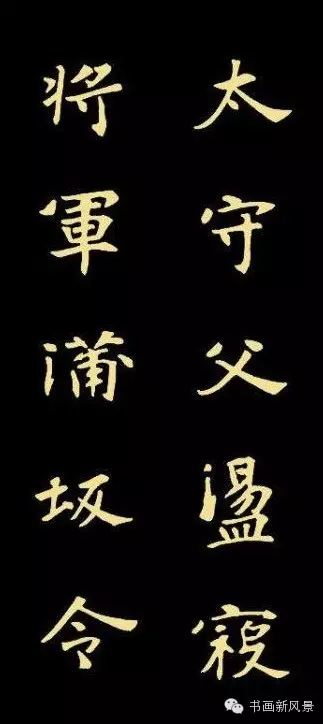 太守父盪寇
将軍蒲坂令
书画新风景